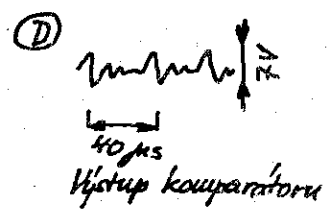 D
7V
40 µs
Výstup komparátoru